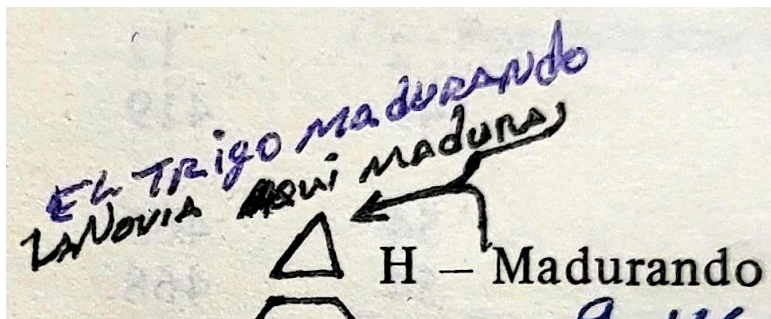 EL TRigo MaduRANdo
LA NoviA AQui MAduRA
H – Madurando